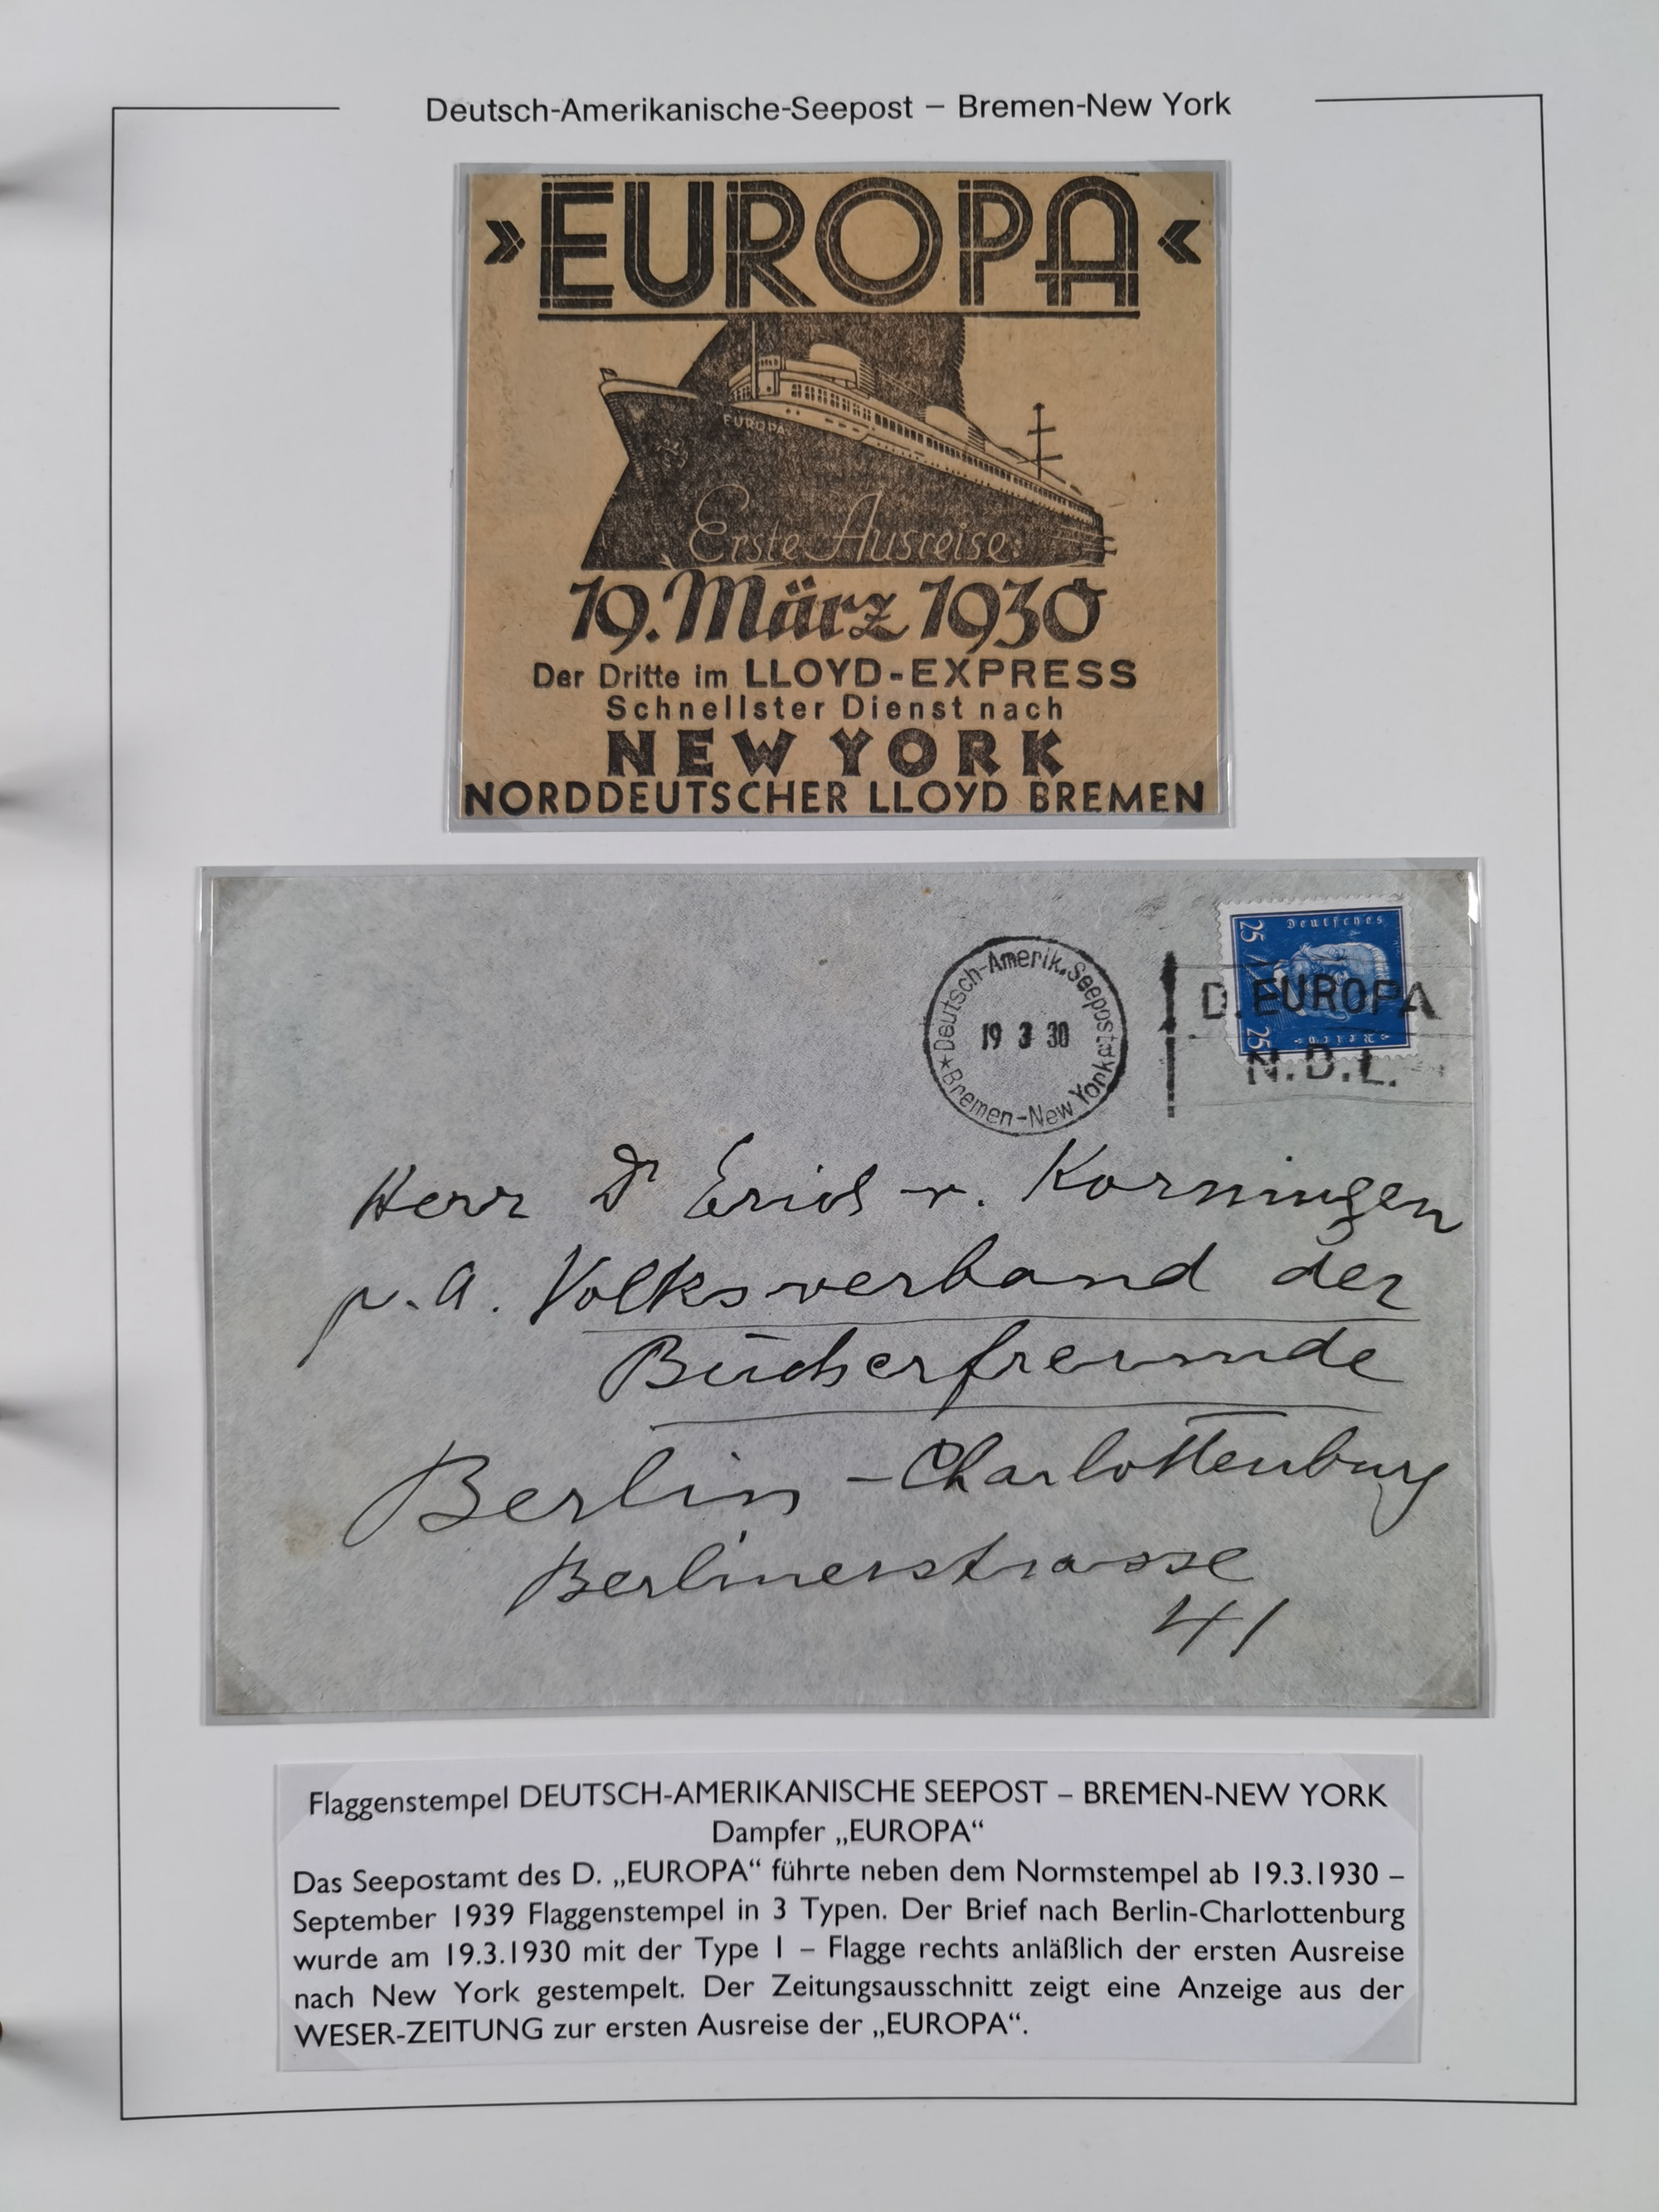 Deutsch-Amerikanische-Seepost – Bremen-New York
»EUROPA«
EUROPA
Erste Ausreise:
19. März 1930
Der Dritte im LLOYD-EXPRESS
Schnellster Dienst nach
NEW YORK
NORDDEUTSCHER LLOYD BREMEN
Deutsch-Amerik. Seepost
19 3 30
Bremen-New York
a
Deutsches
Reich
25
25
D. EUROPA
N.D.L.
Herr Dr Erich v. Korningen
p. A. Volksverband der
Bücherfreunde
Berlin - Charlottenburg
Berlinerstrasse
41
Flaggenstempel DEUTSCH-AMERIKANISCHE SEEPOST – BREMEN-NEW YORK
Dampfer „EUROPA“
Das Seepostamt des D. „EUROPA“ führte neben dem Normstempel ab 19.3.1930 –
September 1939 Flaggenstempel in 3 Typen. Der Brief nach Berlin-Charlottenburg
wurde am 19.3.1930 mit der Type I – Flagge rechts anläßlich der ersten Ausreise
nach New York gestempelt. Der Zeitungsausschnitt zeigt eine Anzeige aus der
WESER-ZEITUNG zur ersten Ausreise der „EUROPA“.